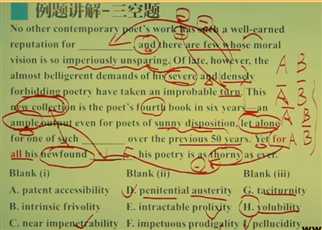 例题讲解-三空题
No other contemporary poet's work has such a well-earned
reputation for ________, and there are few whose moral
vision is so imperiously unsparing. Of late, however, the
almost belligerent demands of his severe and densely
forbidding poetry have taken an improbable turn. This
new collection is the poet's fourth book in six years—an
ample output even for poets of sunny disposition, let alone
for one of such ________ over the previous 50 years. Yet for
all his newfound ________, his poetry is as thorny as ever.
Blank (i) Blank (ii) Blank (iii)
A. patent accessibility D. penitential austerity G. taciturnity
B. intrinsic frivolity E. intractable prolixity H. volubility
C. near impenetrability F. impetuous prodigality I. pellucidity
A B
A B
A B
A B